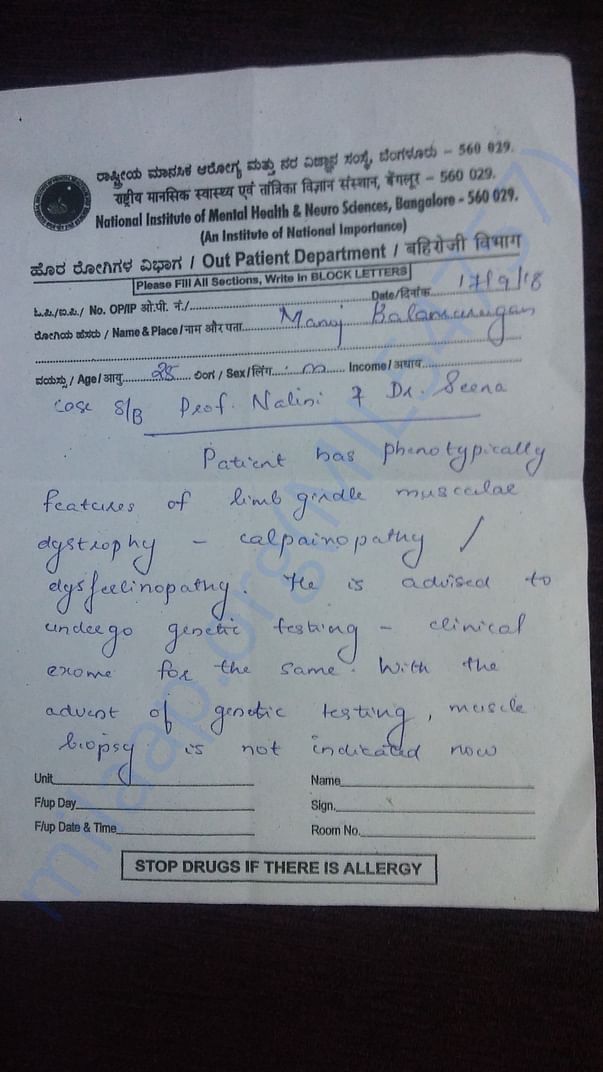 ರಾಷ್ಟ್ರೀಯ ಮಾನಸಿಕ ಆರೋಗ್ಯ ಮತ್ತು ನರ ವಿಜ್ಞಾನ ಸಂಸ್ಥೆ, ಬೆಂಗಳೂರು – 560 029.
राष्ट्रीय मानसिक स्वास्थ्य एवं तांत्रिका विज्ञान संस्थान, बेंगलूर – 560 029.
National Institute of Mental Health & Neuro Sciences, Bangalore - 560 029.
(An Institute of National Importance)
ಹೊರ ರೋಗಿಗಳ ವಿಭಾಗ / Out Patient Department / बहिरोजी विभाग
Please Fill All Sections, Write in BLOCK LETTERS
ಓ.ಪಿ./ಐ.ಪಿ./ No. OP/IP ओ.पी. नं./ Date/दिनांक 17/9/18
ರೋಗಿಯ ಹೆಸರು / Name & Place / नाम और पता Manoj Balamurugan
ವಯಸ್ಸು / Age / आयु 25 ಲಿಂಗ / Sex / लिंग m Income / अधाय
case S/B Prof. Nalini & Dr. Seena
Patient has phenotypically
features of limb girdle muscular
dystrophy - calpainopathy /
dysferlinopathy. He is advised to
undergo genetic testing - clinical
exome for the same. With the
advent of genetic testing, muscle
biopsy is not indicated now
Unit Name
F/up Day Sign.
F/up Date & Time Room No.
STOP DRUGS IF THERE IS ALLERGY